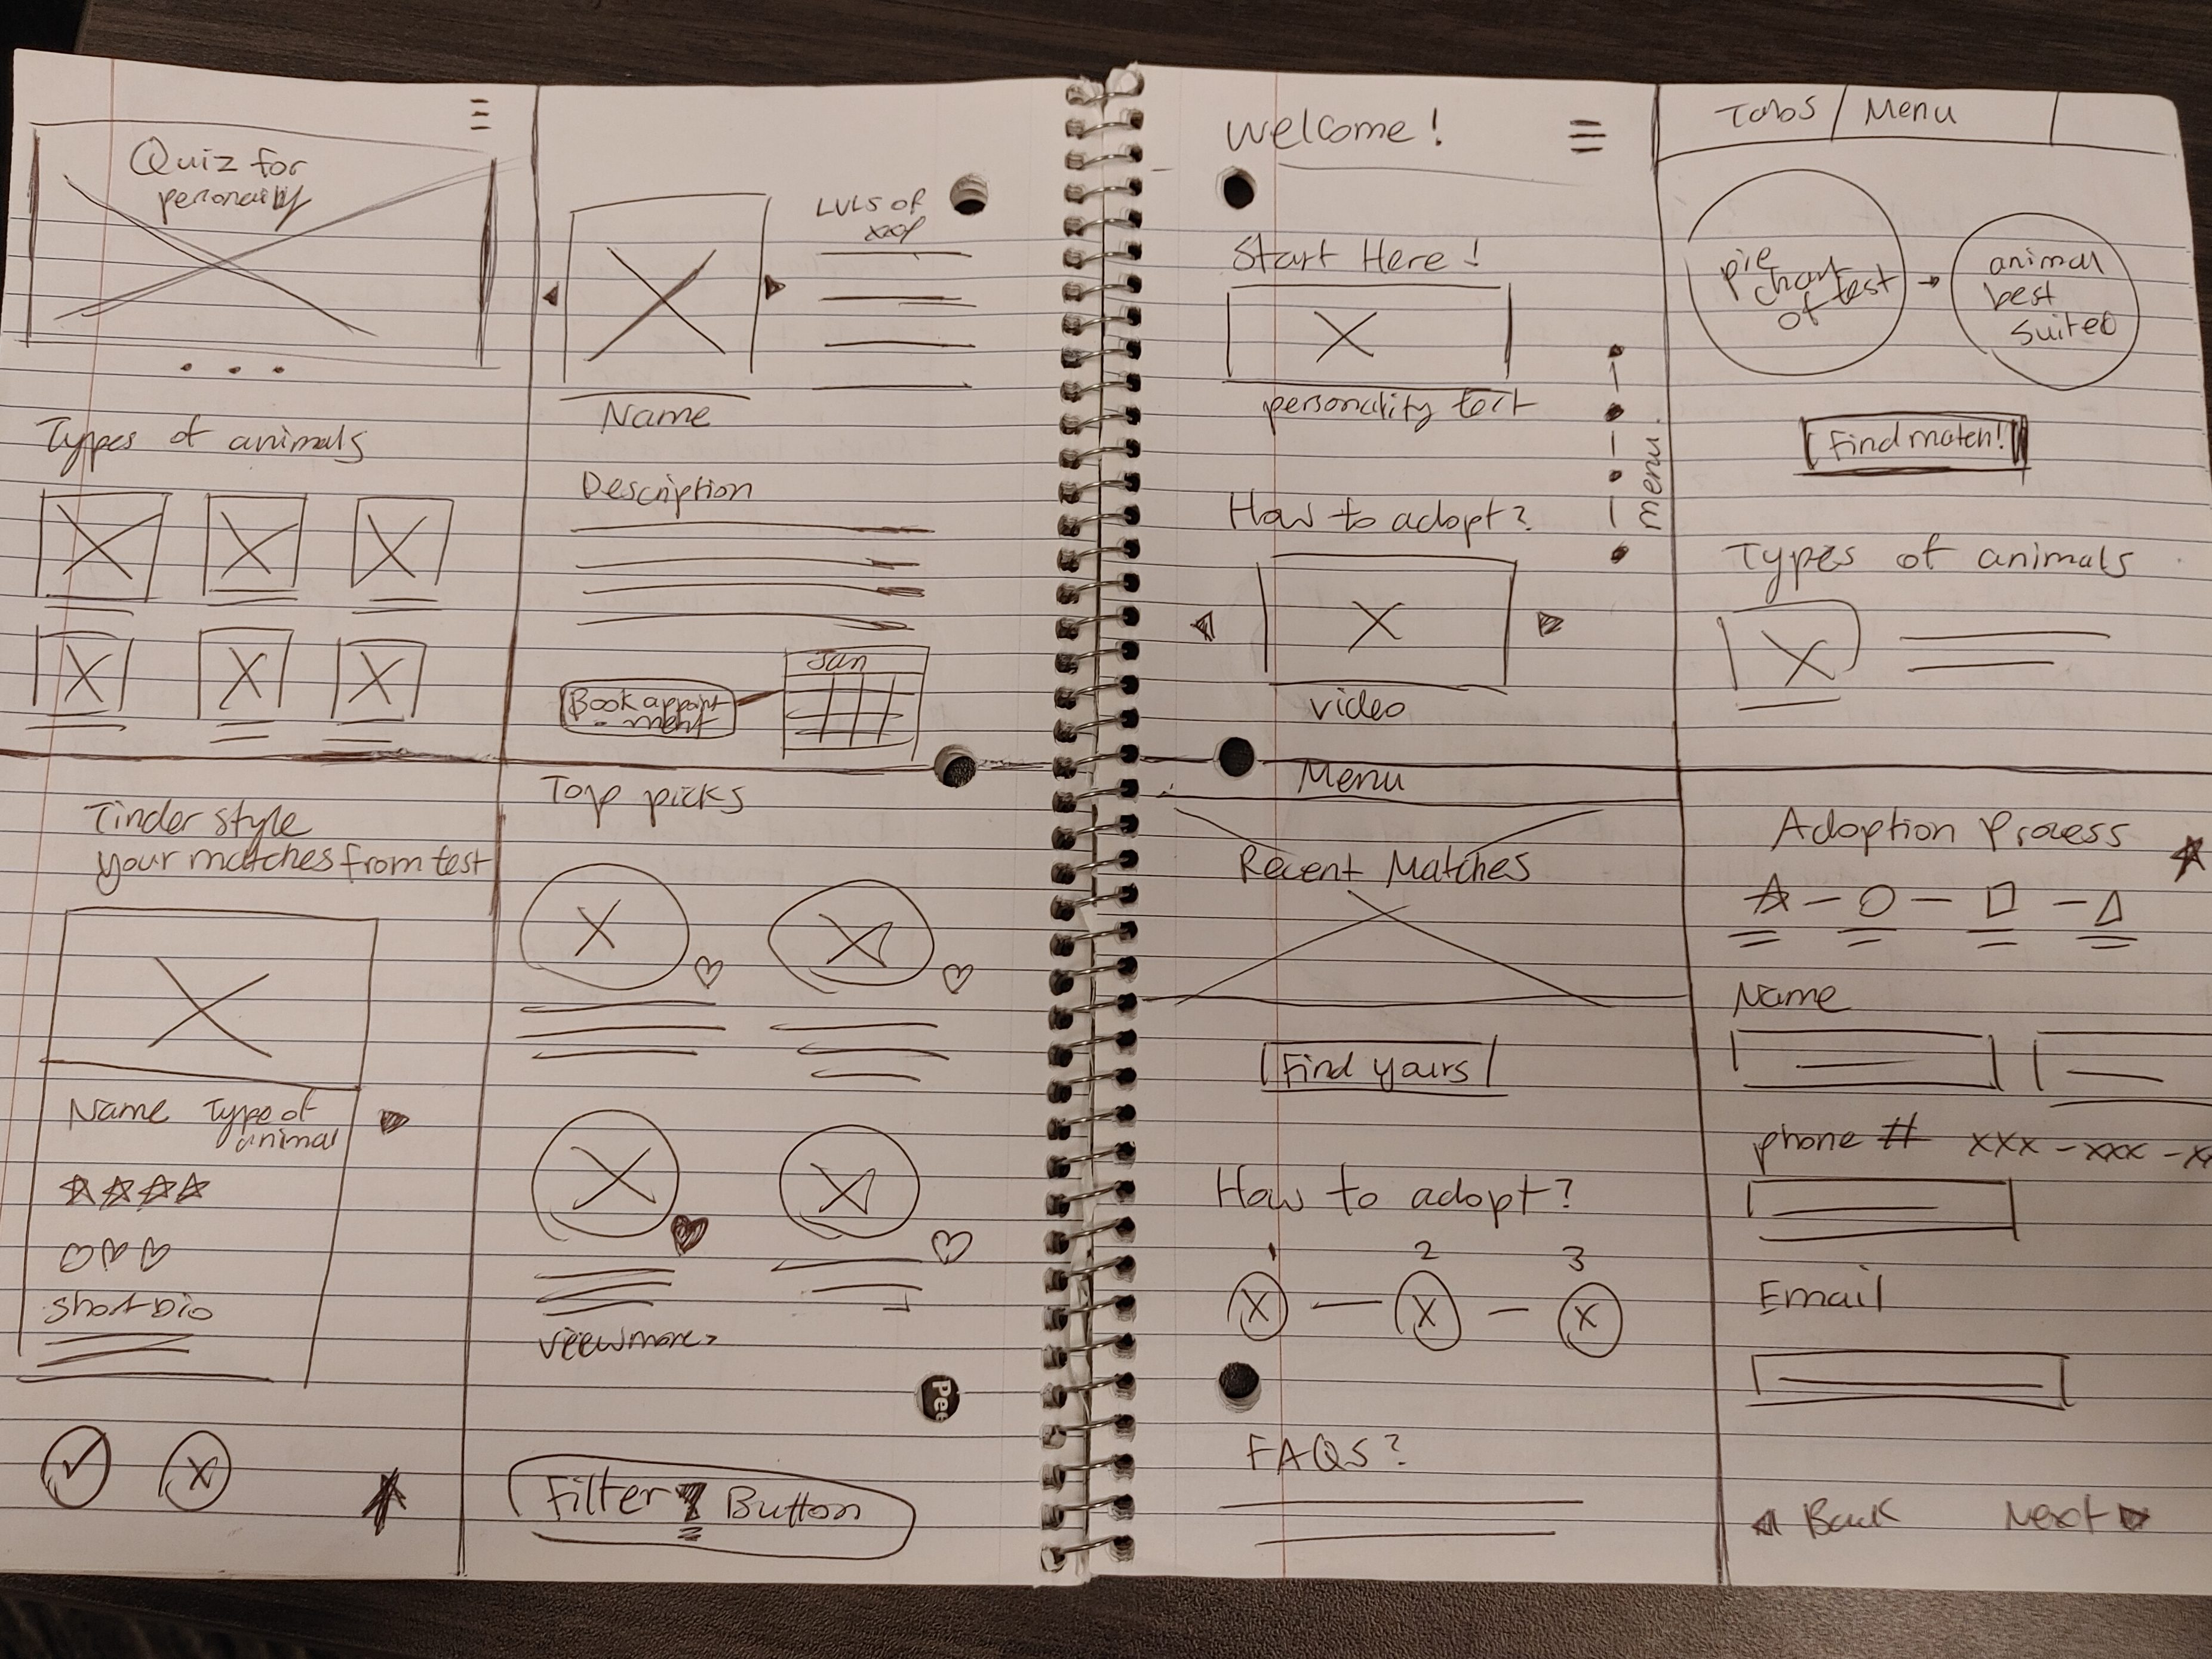 Quiz for
personality
Types of animals
LVLS of
Name
Description
Jan
Book appoint
- ment
Tinder style
your matches from test
Name Type of
animal
short bio
Top picks
view more >
Pee
Filter Button
Welcome!
Start Here!
personality test
menu.
How to adopt?
video
Tabs / Menu
pie
chart
of test
animal
best
suited
Find match!
Types of animals
Menu
Recent Matches
Find yours
How to adopt?
1 2 3
X X X
FAQS?
Adoption Process
Name
phone # xxx - xxx - x
Email
Back Next